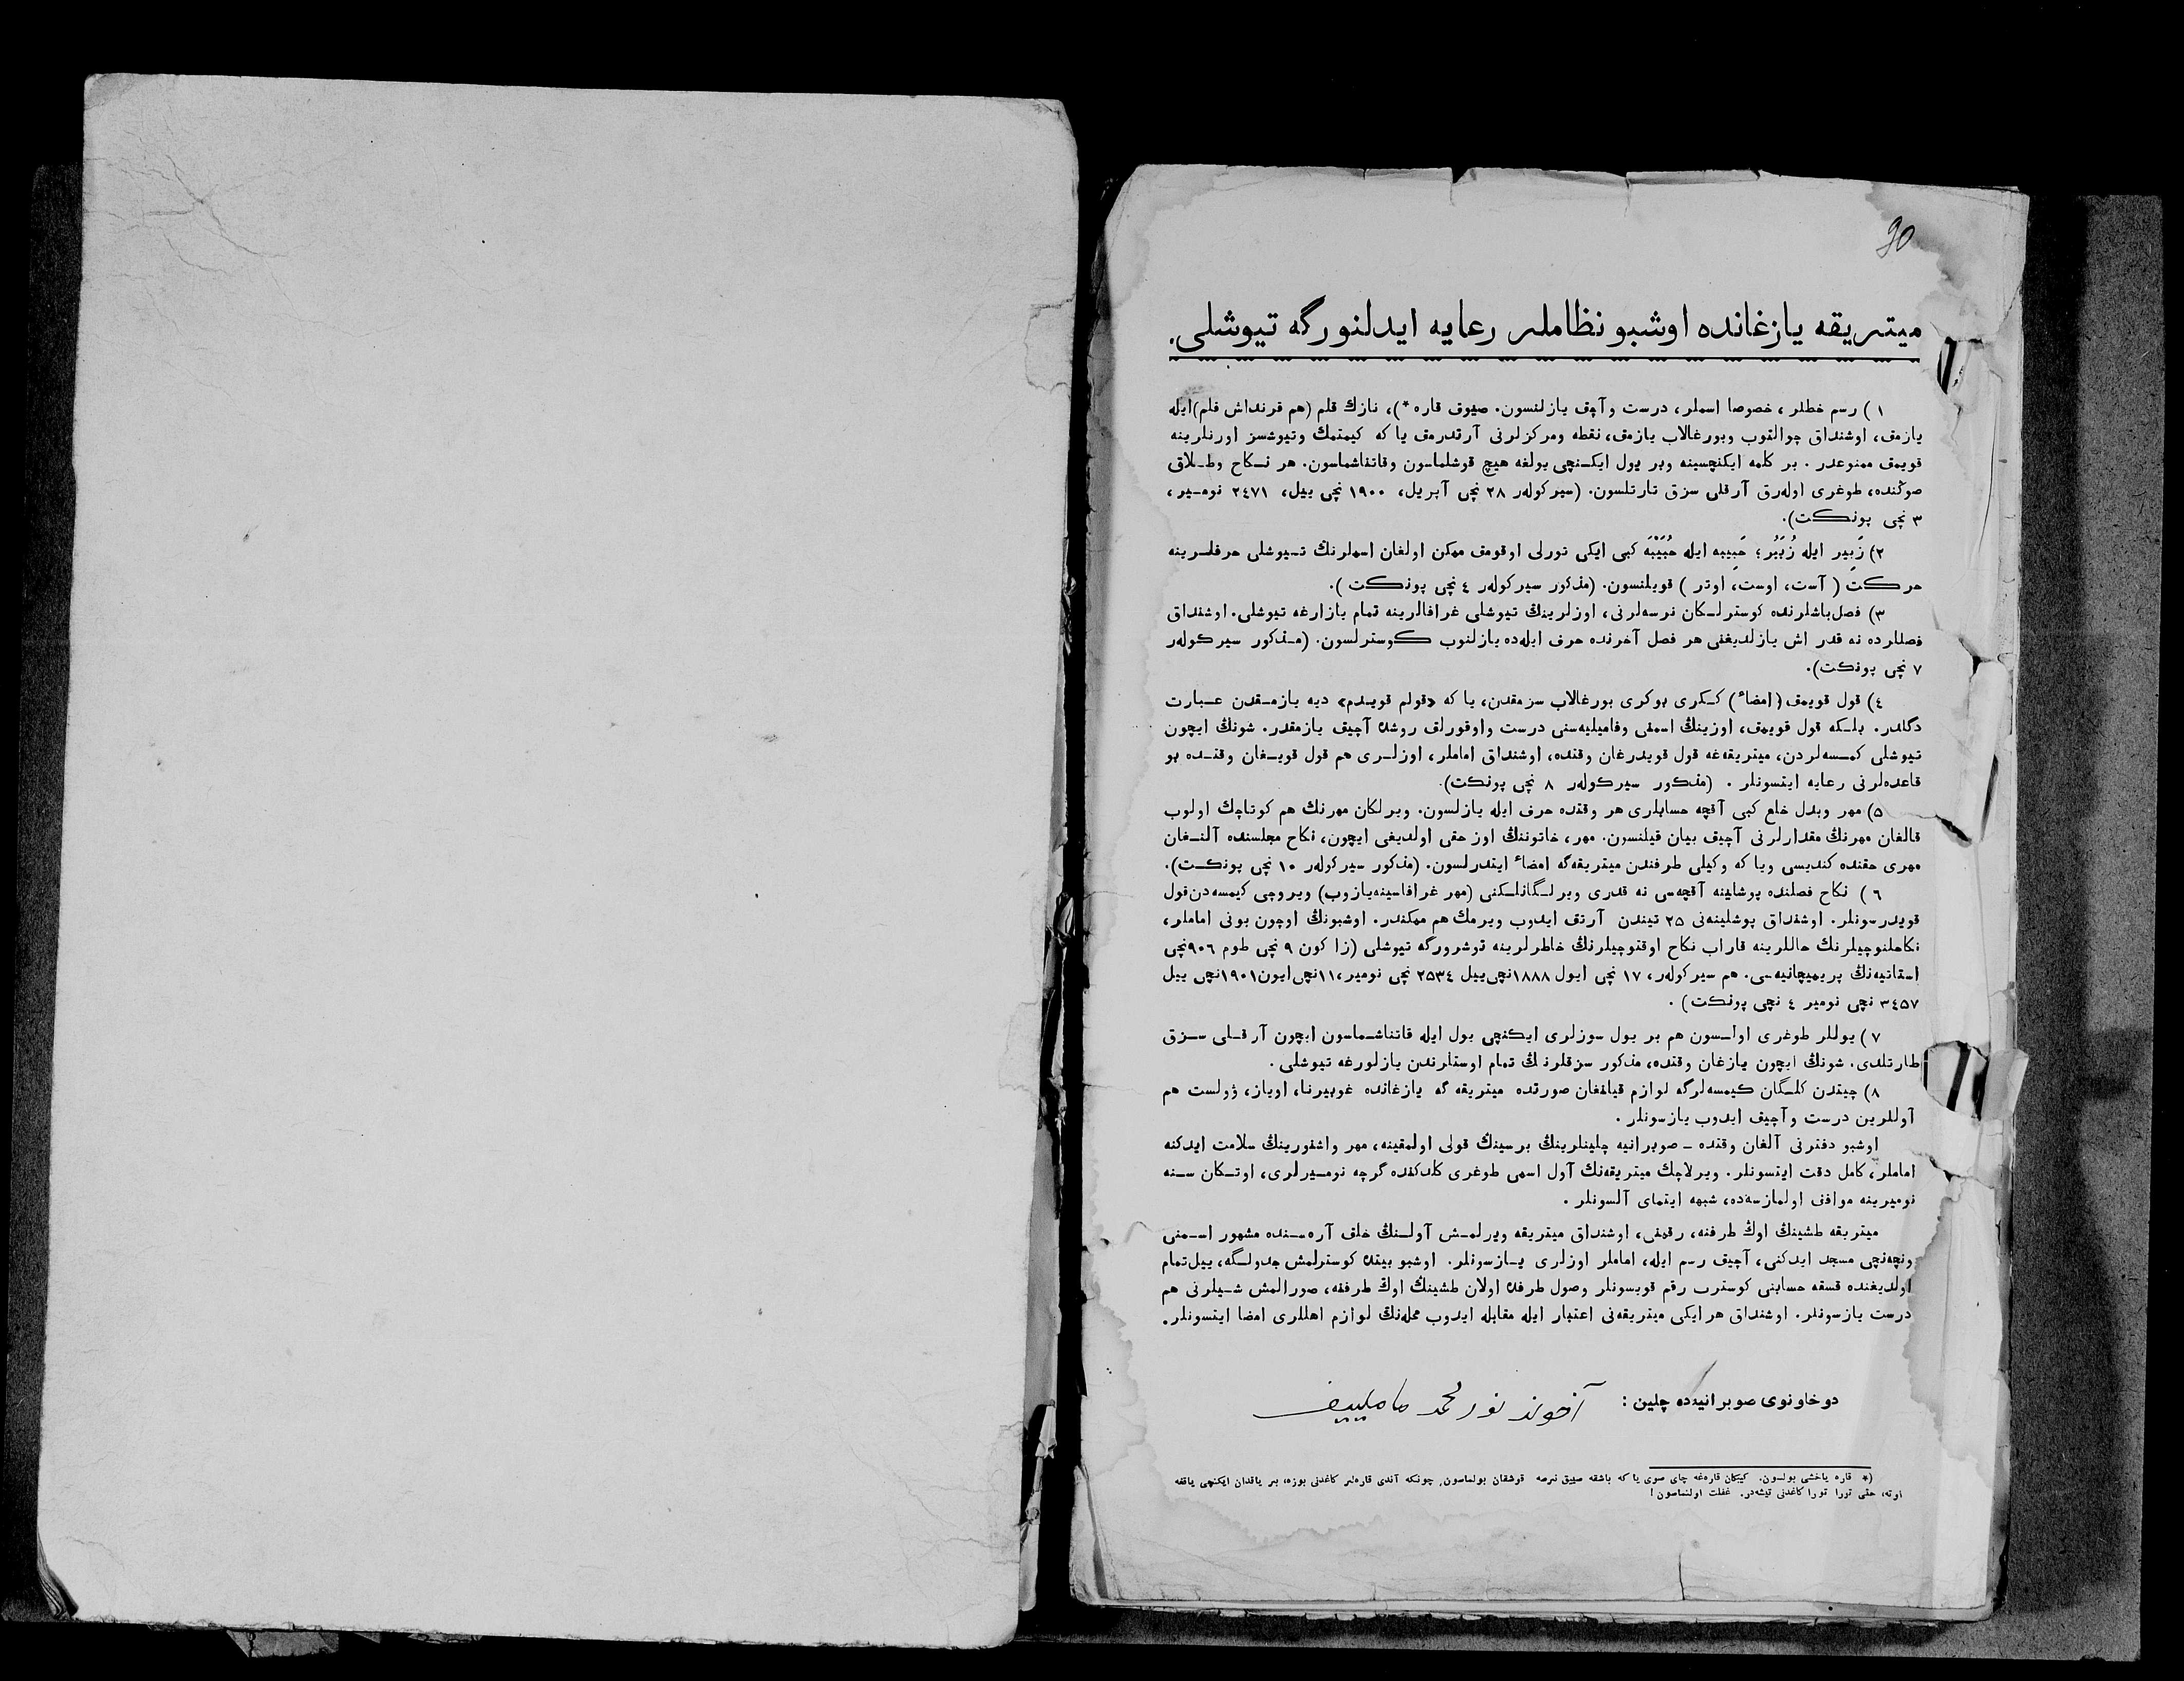 90
ميتريقه يازغانده اوشبو نظاملر رعايه ايدلنورگه تيوشلی.
۱) رسم خطلر، خصوصا اسملر، درست و آچق يازلنسون. صيوق قاره *)، نازك قلم (هم قرنداش قلم) ايله
يازمق، اوشنداق چوالتوب وبورغالاب يازمق، نقطه ومركزلرنی آرتدرمق يا كه كيمتمك وتيوشسز اورنلرينه
قويمق ممنوعدر. بر كلمه ايكنچسينه وبر يول ايكنچی يولغه هيچ قوشلماسون وقاتناشماسون. هر نكاح وطلاق
صوڭنده، طوغری اولەرق آرقلی سزق تارتلسون. (سيركولەر ۲۸ نچی آپريل، ۱۹۰۰ نچی ييل، ۲٤۷۱ نومير،
۳ نچی پونكت).
۲) زَبِير ايله زُبَيْر؛ حَبِيبه ايله حُبَيْبَه كبی ايكی تورلی اوقومق ممكن اولغان اسملرنڭ تيوشلی حرفلرينه
حركت (آست، اوست، اوتر) قويلنسون. (مذكور سيركولەر ٤ نچی پونكت).
۳) فصل باشلرنده كوسترلكان نرسەلرنی، اوزلرينڭ تيوشلی غرافالرينه تمام يازارغه تيوشلی. اوشنداق
فصللرده نه قدر اش يازلديغنی هر فصل آخرنده حرف ايلەده يازلنوب كوسترلسون. (مذكور سيركولەر
۷ نچی پونكت).
٤) قول قويمق (امضاء) ككری بوكری بورغالاب سزمقدن، يا كه «قولم قويدم» ديه يازمقدن عبارت
دگلدر. بلكه قول قويمق، اوزينڭ اسمنی وفاميليەسنی درست واوقورلق روشده آچيق يازمقدر. شونڭ ايچون
تيوشلی كمسەلردن، ميتريقەغه قول قويدرغان وقتده، اوشنداق اماملر، اوزلری هم قول قويغان وقتده بو
قاعدەلرنی رعايه ايتسونلر. (مذكور سيركولەر ۸ نچی پونكت).
۵) مهر وبدل خلع كبی آقچه حسابلری هر وقتده حرف ايله يازلسون. ويرلكان مهرنڭ هم كوتاچك اولوب
قالغان مهرنڭ مقدارلرنی آچيق بيان قيلنسون. مهر، خاتوننڭ اوز حقی اولديغی ايچون، نكاح مجلسنده آلنغان
مهری حقنده كنديسی ويا كه وكيلی طرفندن ميتريقەگه امضاء ايتدرلسون. (مذكور سيركولەر ۱۰ نچی پونكت).
٦) نكاح فصلنده پوشلينه آقچەسی نه قدری ويرلگانلكنی (مهر غرافاسينه يازوب) ويروچی كيمسەدن قول
قويدرسونلر. اوشنداق پوشلينەنی ۲۵ تيندن آرتق ايدوب ويرمك هم ممكندر. اوشبونڭ اوچون بونی اماملر،
نكاحلنوچيلرنڭ حاللرينه قاراب نكاح اوقتوچيلرنڭ خاطرلرينه توشرورگه تيوشلی (زاكون ۹ نچی طوم ۹۰٦ نچی
استاتيەنڭ پريميچانيەسی. هم سيركولەر، ۱۷ نچی ايول ۱۸۸۸ نچی ييل ۲۵۳٤ نچی نومير، ۱۱ نچی ايون ۱۹۰۱ نچی ييل
۳٤۵۷ نچی نومير ٤ نچی پونكت).
۷) يوللر طوغری اولسون هم بر يول سوزلری ايكنچی يول ايله قاتناشماسون ايچون آرقلی سزق
طارتلدی. شونڭ ايچون يازغان وقتده، مذكور سزقلرنڭ تمام اوستلرندن يازلورغه تيوشلی.
۸) چيتدن كلگان كيمسەلرگه لوازم قيلنغان صورتده ميتريقەگه يازغانده غوبيرنا، اوياز، ۋولست هم
آوللرين درست وآچيق ايدوب يازسونلر.
اوشبو دفترنی آلغان وقتده ــ صوبرانيه چلينلرينڭ برسينڭ قولی اولمقينه، مهر واشنورينڭ سلامت ايدكنه
اماملر، كامل دقت ايتسونلر. ويرلاچك ميتريقەنڭ آول اسمی طوغری كلدكنده گرچه نوميرلری، اوتكان سنه
نوميرينه موافق اولمازسەده، شبهه ايتمای آلسونلر.
ميتريقه طشينڭ اوڭ طرفنه، رقمنی، اوشنداق ميتريقه ويرلمش آولنڭ خلق آرەسنده مشهور اسمنی
ونچەنچی مسجد ايدكنی، آچيق رسم ايله، اماملر اوزلری يازسونلر. اوشبو بيتده كوسترلمش جدولگه، ييل تمام
اولديغنده قسقه حسابنی كوسترب رقم قويسونلر وصول طرفده اولان طشينڭ اوڭ طرفنه، صورالمش شيلرنی هم
درست يازسونلر. اوشنداق هر ايكی ميتريقەنی اعتبار ايله مقابله ايدوب محلەنڭ لوازم اهللری امضا ايتسونلر.
دوخاونوی صوبرانيەده چلين: آخوند نور محمد ماملييف
*) قاره ياخشی بولسون. كيبكان قارەغه چای صوی يا كه باشقه صييق نرسه قوشقان بولماسون، چونكه آندی قارەلر كاغدنی بوزه، بر ياقدان ايكنچی ياققه
اوته، حتی تورا تورا كاغدنی تيشەدر. غفلت اولنماسون!